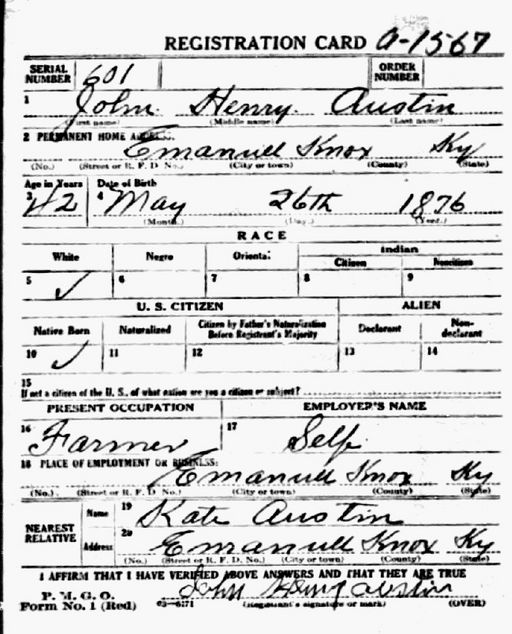 REGISTRATION CARD A-1567
SERIAL NUMBER 601 ORDER NUMBER
1 John Henry Austin
(First name) (Middle name) (Last name)
2 PERMANENT HOME ADDRESS:
Emanuell Knox Ky
(No.) (Street or R. F. D. No.) (City or town) (County) (State)
Age in Years Date of Birth
3 42 4 May 26th 1876
(Month.) (Day.) (Year.)
RACE
White Negro Oriental Indian
Citizen Noncitizen
5 ✓ 6 7 8 9
U. S. CITIZEN ALIEN
Native Born Naturalized Citizen by Father's Naturalization Before Registrant's Majority Declarant Non-declarant
10 ✓ 11 12 13 14
15
If not a citizen of the U. S., of what nation are you a citizen or subject?
PRESENT OCCUPATION EMPLOYER'S NAME
16 Farmer 17 Self
18 PLACE OF EMPLOYMENT OR BUSINESS:
Emanuell Knox Ky
(No.) (Street or R. F. D. No.) (City or town) (County) (State)
NEAREST RELATIVE Name 19 Kate Austin
Address 20 Emanuell Knox Ky
(No.) (Street or R. F. D. No.) (City or town) (County) (State)
I AFFIRM THAT I HAVE VERIFIED ABOVE ANSWERS AND THAT THEY ARE TRUE
P. M. G. O. John Henry Austin
Form No. 1 (Red) 03-6171 (Registrant's signature or mark) (OVER)